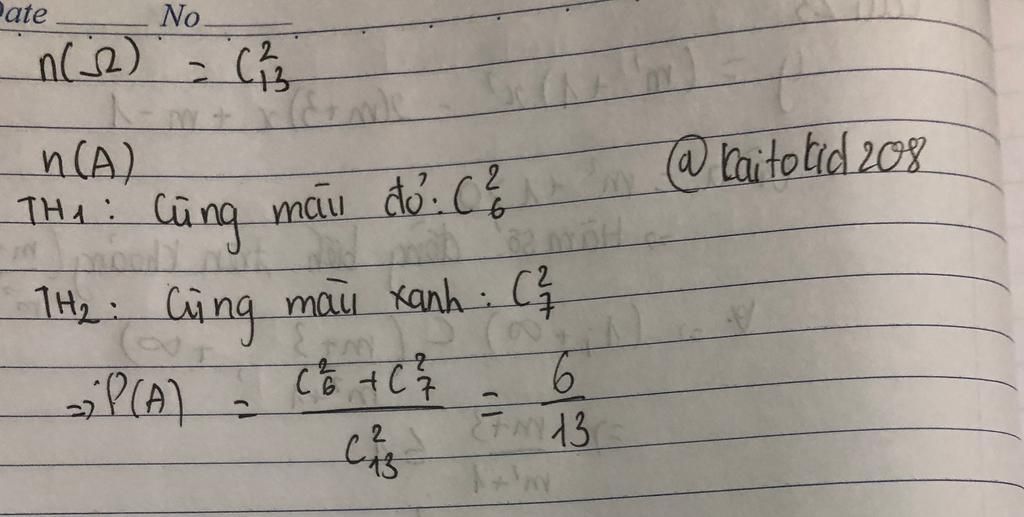 Date No
n(Ω) = C²₁₃
n(A) @kaitokid208
TH₁: Cùng màu đỏ: C²₆
TH₂: Cùng màu xanh: C²₇
=> P(A) = (C²₆ + C²₇) / C²₁₃ = 6/13